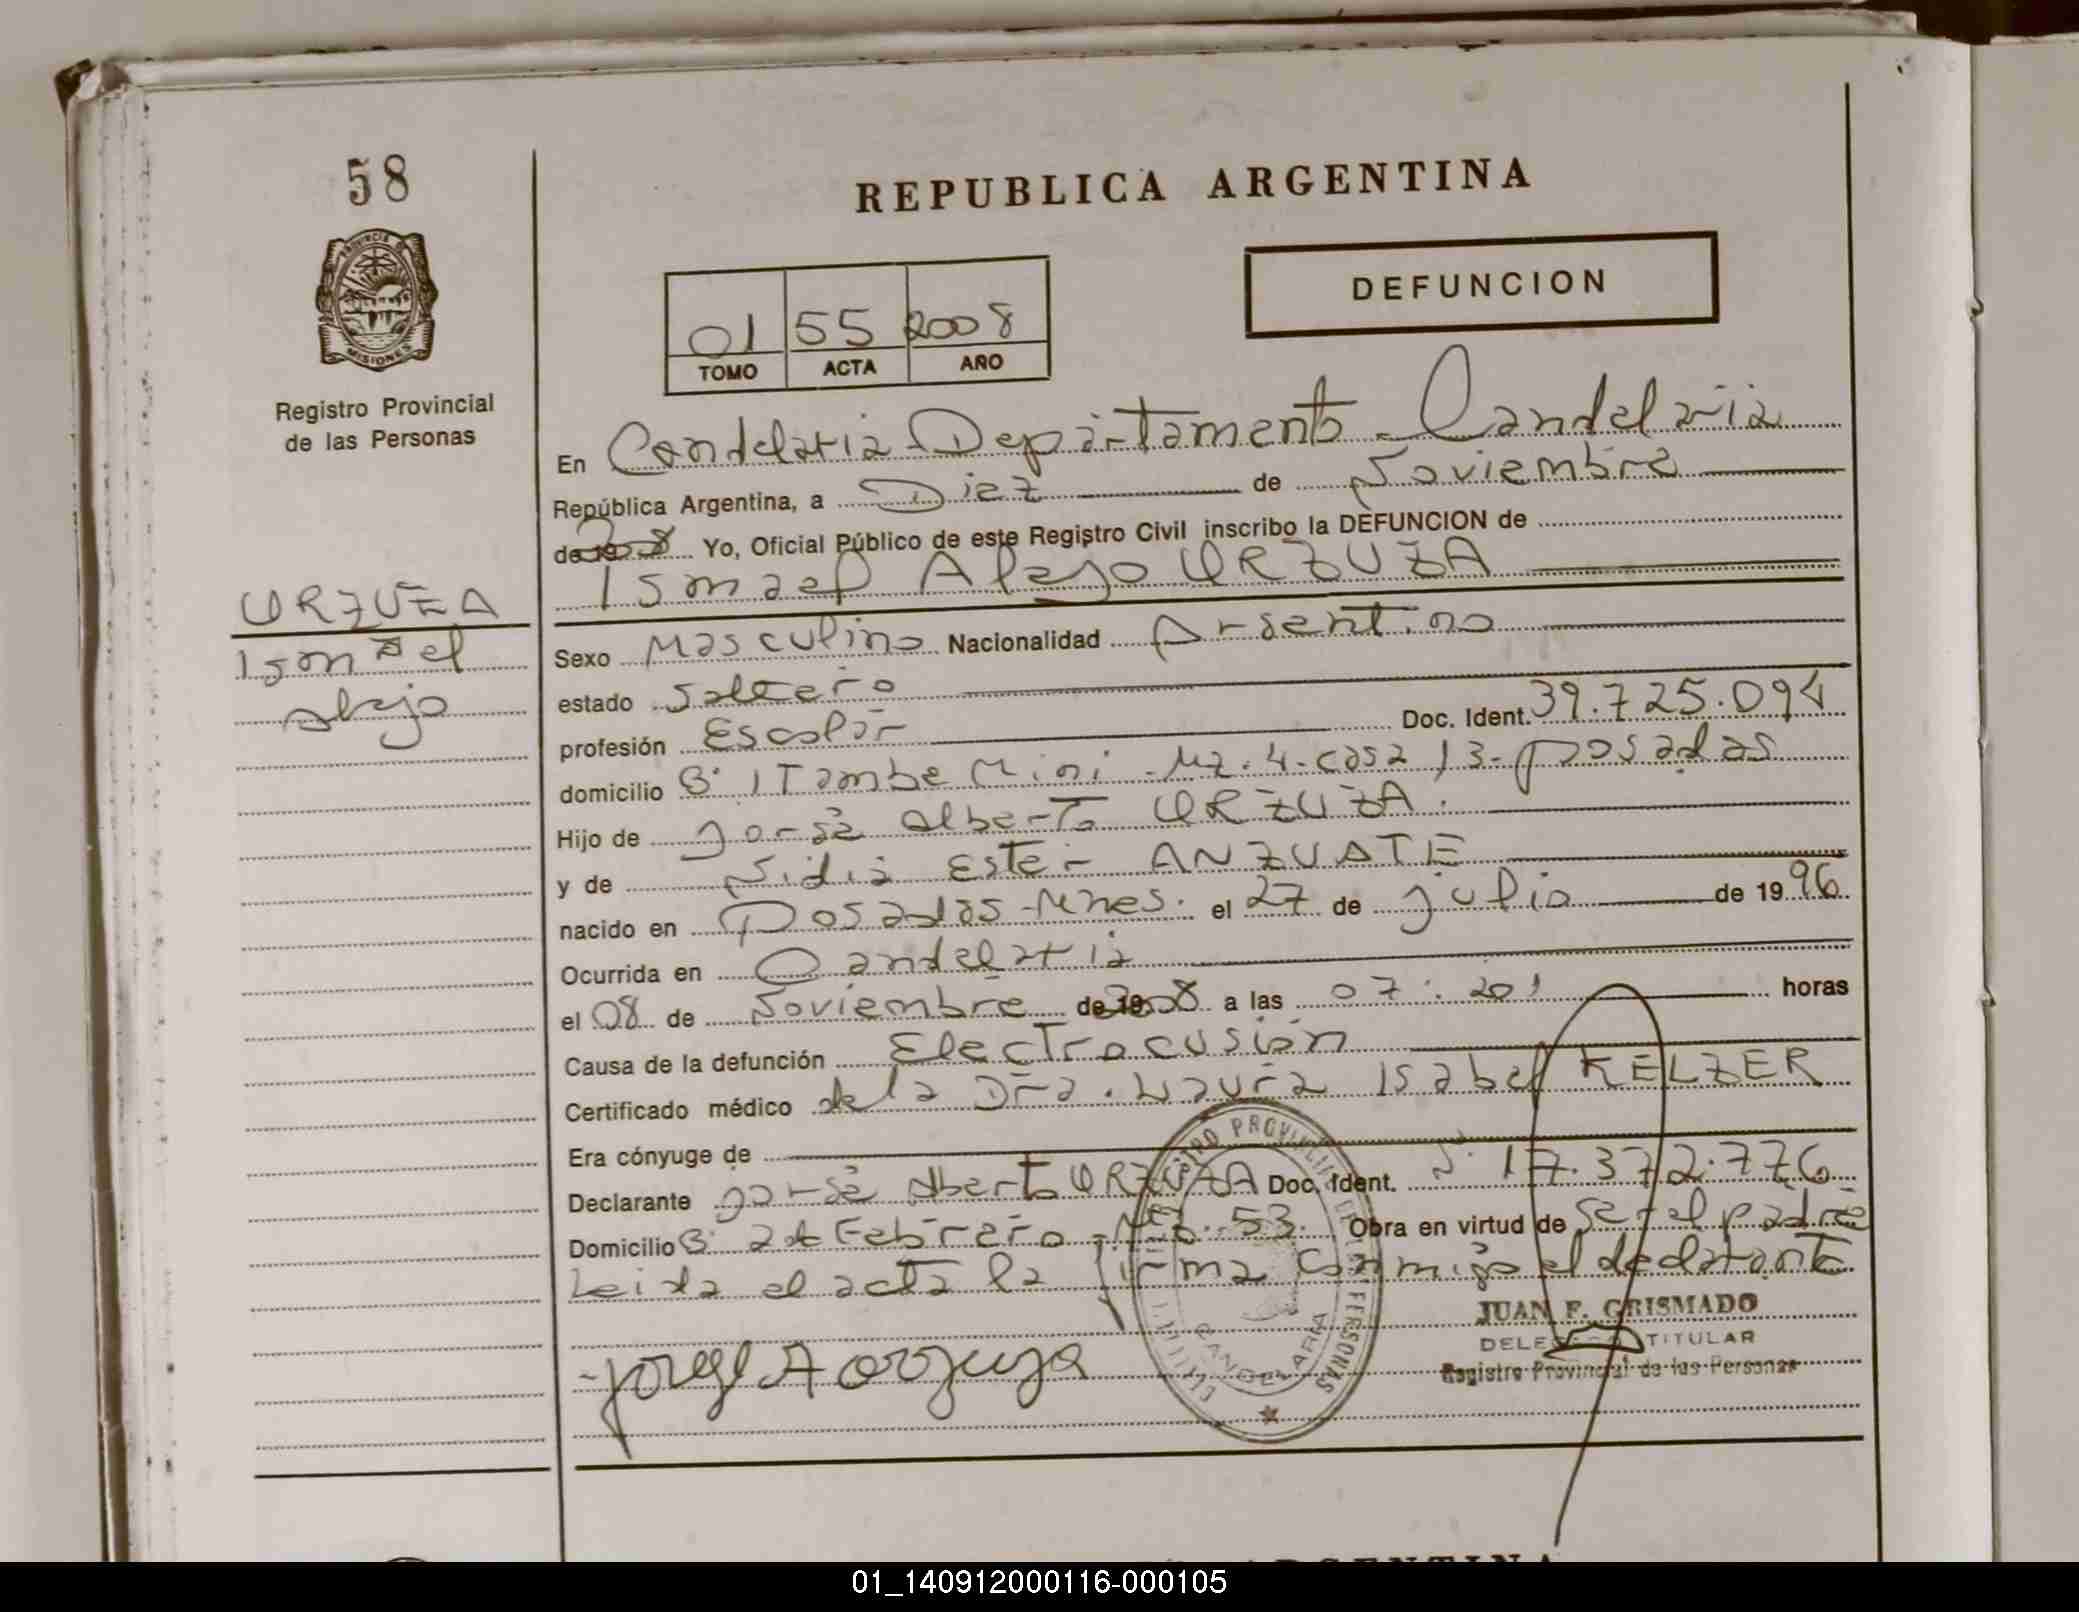 58
REPUBLICA ARGENTINA
DEFUNCION
PROVINCIA DE MISIONES
Registro Provincial
de las Personas
01 55 2008
TOMO ACTA AÑO
En Candelaria Departamento Candelaria
República Argentina, a Diez de Noviembre
de 2008 Yo, Oficial Público de este Registro Civil inscribo la DEFUNCION de
Ismael Alejo URZUZA
URZUZA
Ismael
Alejo
Sexo Masculino Nacionalidad Argentino
estado Soltero
profesión Escolar Doc. Ident. 39.725.094
domicilio B° ITambe Mini - Mz. 4 - casa 13 - Posadas
Hijo de Jorge Alberto URZUZA.
y de Nidia Ester ANZUATE
nacido en Posadas - Mnes. el 27 de julio de 1996
Ocurrida en Candelaria
el 08 de Noviembre de 2008 a las 07:20' horas
Causa de la defunción Electrocusión
Certificado médico de la Dra. Laura Isabel KELZER
Era cónyuge de
Declarante Jorge Alberto URZUZA Doc. Ident. N° 17.372.776
Domicilio B° 2 de Febrero 53. Obra en virtud de Ser el padre
Leida el acta la firma conmigo el declarante
JUAN F. GRISMADO
DELEGADO TITULAR
Registro Provincial de las Personas
Jorge A orzuza
REGISTRO PROVINCIAL DE LAS PERSONAS
CANDELARIA
ARGENTINA
01_140912000116-000105